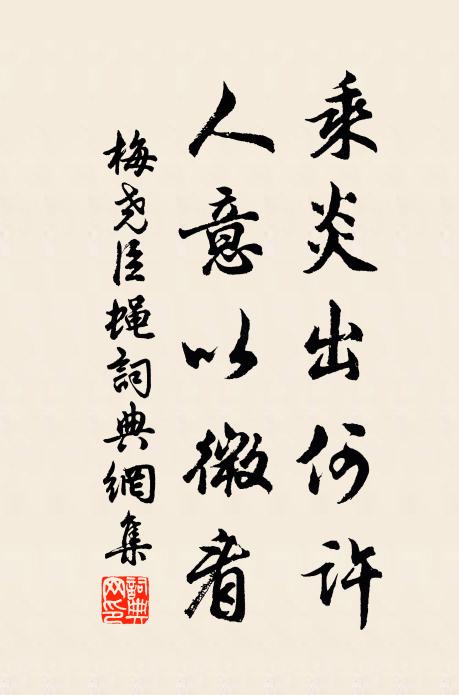 乘炎出何许
人意以微看
梅尧臣蝇詞典網集
詞典网印